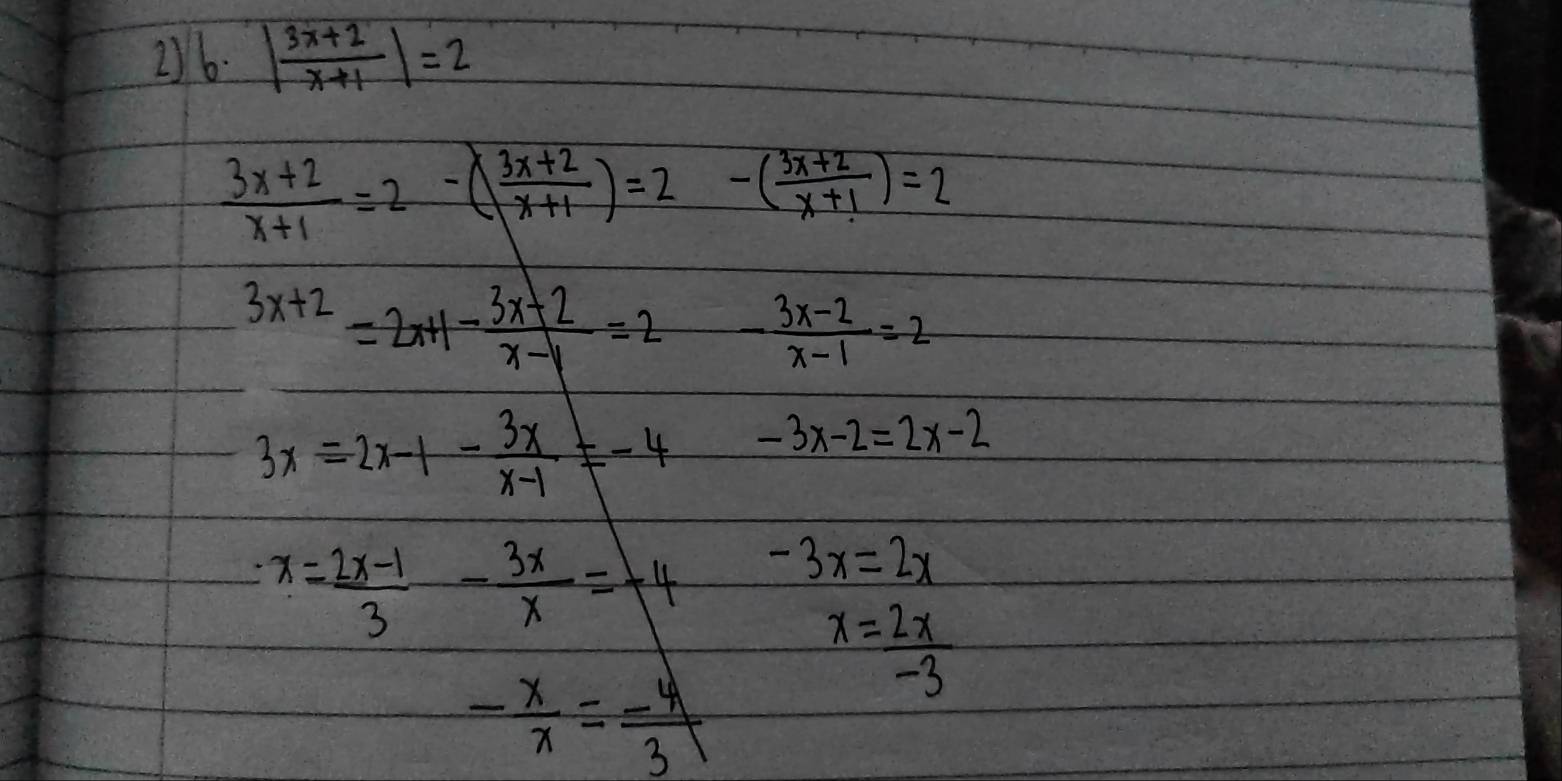 2) b. |3x+2/x+1| = 2
3x+2/x+1 = 2 -(3x+2/x+1) = 2 -(3x+2/x+1) = 2
3x+2 = 2x+1 - 3x-2/x-1 = 2 - 3x-2/x-1 = 2
3x = 2x-1 - 3x/x-1 = -4 -3x-2 = 2x-2
x = 2x-1/3 - 3x/x = -4 -3x = 2x
x = 2x/-3
- x/x = -4/3